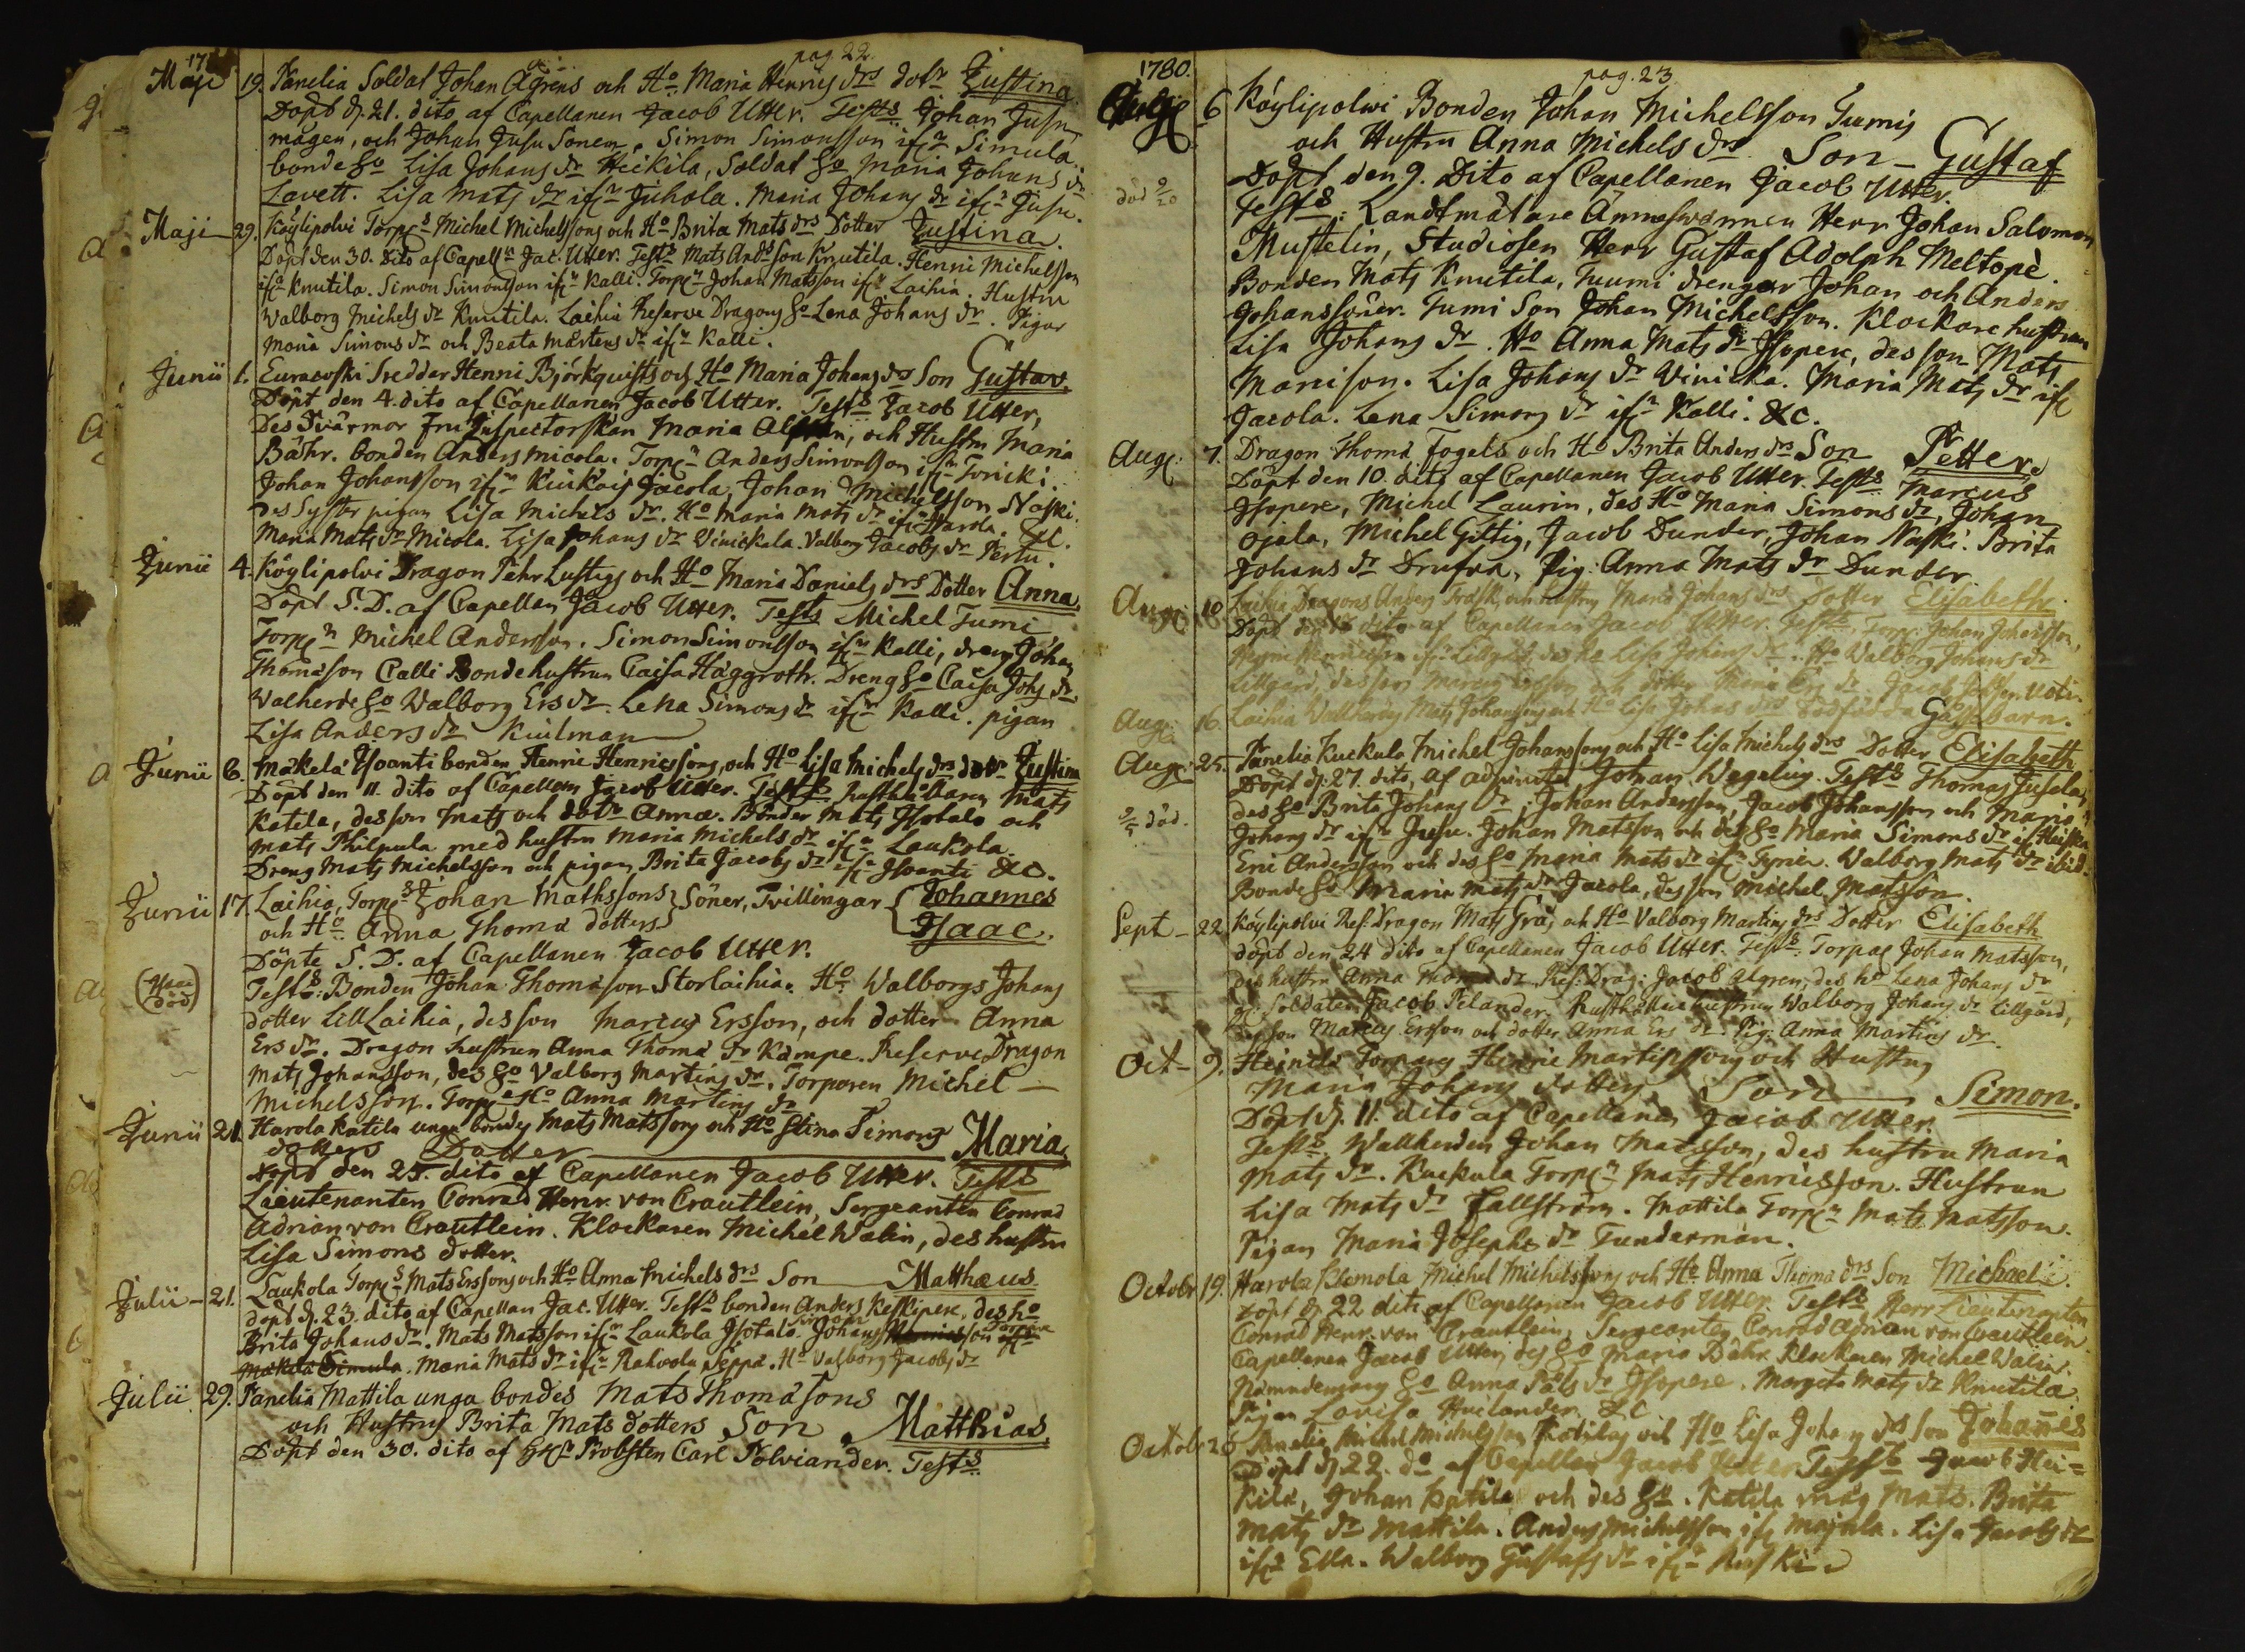 pag. 22.
Maji 19. Panelia Soldat Johan Agrens och Ho. Maria Henrics drs dotr Justina
Döpt d. 21. dito af Capellanen Jacob Utter. Tests Johan Jusu
mågen, och Johan Jusu Sonen, Simon Simonsson ifrn Simula
bonde Ho Lisa Johans dr Heikila, Soldat Ho Maria Johans dr
Lavett. Lisa Mats dr ifrn Juhola. Maria Johans dr ifrn Jusu.
Maji 29. Köylipolvi Torps Michel Michelssons och Ho Brita Mats drs Dotter Justina.
Döpt den 30. dito af Capelln Jac. Utter. Tests Mats Ands son Knutila. Henric Michelsson
ifrn Knutila. Simon Simonsson ifrn Kalli. Torpn Johan Matsson ifrn Laihia. Hustru
Walborg Michels dr Knutila. Laihia Reserve Dragons Ho Lena Johans dr. Pigor
Maria Simons dr och Beata Mårtens dr ifrn Kalli.
Junii 1. Euracoski Sreddar Henric Björkquists och Ho Maria Johans drs Son Gustav.
Döpt den 4. dito af Capellanen Jacob Utter. Tests Jacob Utter,
Des Svärmor Fru Inspectorskan Maria, och Hustru Maria
Bähr. bonden Anders Micola. Torpn Anders Simonsson ifrn Toricki.
Johan Johansson ifrn Kuikais Jacola, Johan Michelsson Naski.
Des Syster pigan Lisa Michels dr. Ho Maria Mats dr ifrn Harola.
Maria Mats dr Micola. Lisa Johans dr Vinickala. Valborg Jacobs dr Pertu. &c.
Junii 4. Köylipolvi Dragon Pehr Lustigs och Ho Maria Daniels drs Dotter Anna.
Döpt S. D. af Capellan Jacob Utter. Tests Michel Tumi
Torpn Michel Andersson. Simon Simonsson ifrn Kalli, dreng Johan
Thomasson Calli Bondehustrun Caisa Häggroth. Dreng Ho Caisa Johs dr.
Valherde Ho Walborg Ers dr. Lena Simons dr ifrn Kalli. pigan
Lisa Anders dr Kuilman
Junii 6. Mäkelä Isoanti bonden Henric Henricssons, och Ho Lisa Michels drs dotr Justina
Döpt den 11. dito af Capellan Jacob Utter. Tests Rusthållaren Mats
Katila, des son Mats och dotr Anna. Bönder Mats Isotalo och
Mats Philpula med hustru Maria Michels dr ifrn Laukola.
Dreng Mats Michelsson och pigan Brita Jacobs dr ifrn Isoanti &c.
Junii 17. Laihia, Torps Johan Mathssons
och Ho Anna Thomä dotters } Söner, Tvillingar { Johannes
Isaac.
Döpte S. D. af Capellanen Jacob Utter.
(Isaac död)
Tests: Bonden Johan Thomason Storlaihia. Ho Walborgs Johans
dotter LillLaihia, des son Marcus Ersson, och dotter Anna
Ers dr. Dragon hustrun Anna Thomä dr Kämpe. Reserve Dragon
Mats Johansson, des Ho Valborg Martins dr. Torparen Michel
Michelsson. Torp Ho Anna Martins dr
Junii 21. Harola Katila unga bondes Mats Matssons och Ho Stina Simons
dotters Dotter Maria.
döpt den 25. dito af Capellanen Jacob Utter. Tests
Lieutenanten Conrad Henr. von Crautlein, Sergeanten Conrad
Adrian von Crautlein. Klockaren Michel Walin, des hustru
Lisa Simons dotter.
Julii 21. Laukola Torps Mats Erssons och Ho Anna Michels drs Son Matthæus
döpt d. 23. dito af Capellan Jac. Utter. Tests bonden Anders Keskipere, des Ho
Brita Johans dr. Mats Matsson ifrn Laukola Isotalo. Johan
Maria Mats dr ifrn Rahvola Seppä. Ho Valborg Jacobs dr
Julii 29. Panelia Mattila unga bondes Mats Thomäsons
och Hustrus Brita Mats dotters Son Matthias.
Döpt den 30. dito af Probsten Carl Polviander. Tests.
1780. pag. 23
Aug 6 Köylipolwi Bonden Johan Michelsson Tumis
och Hustru Anna Michels drs Son Gustaf
död 9/20
Döpt den 9. dito af Capellanen Jacob Utter.
Tests: Landtmätare Ämneswännen Herr Johan Salomon
Mustelin, Studiosen Herr Gustaf Adolph Meltopè.
Bonden Mats Knutila, Tuumi drengar Johan och Anders
Johanssöner. Tumi Son Johan Michelsson. Klockare hustrun
Lisa Johans dr. Ho Anna Mats dr Isopere, des son Mats
Marcison. Lisa Johans dr Vinicka. Maria Mats dr ifr
Jacola. Lena Simons dr ifrn Kalli. &c.
Aug: 7. Dragon Thoma Fogels och Ho Brita Anders drs Son Petter.
Döpt den 10. dito af Capellanen Jacob Utter. Tests Marcus
Isopere, Michel Laurin, des Ho Maria Simons dr, Johan
Ojala, Michel Giftig, Jacob Dunder, Johan Naski. Brita
Johans dr Drufva, Pig. Anna Mats dr Dunder.
Aug: 10. Laihia Dragons Anders Frosk, och hustrus Maria Johans drs Dotter Elisabeth.
Döpt den dito af Capellanen Jacob Utter. Tests. Torp. Johan Johansson,
ifrn Lillgård, des Ho Lisa Johans dr. Ho Valborg Johans dr
Lillgård, des son Marcus Ersson och dotter Maria Ers dr.
Aug: 16. Laihia Wallherdes Mats Johanssons och Ho Lisa Johans drs Dödfödda Gåssebarn.
Aug: 25. Panelia Kuckula Michel Johanssons och Ho Lisa Michels drs Dotter Elisabeth
Döpt d. 27. dito, af adjuncten Johan Wegelius. Tests Thomas Jusela,
9/5 död.
des Ho Brita Johans dr, Johan Andersson, Jacob Johansson och Maria
Johans dr ifrn Jusu. Johan Matsson och des Ho Maria Simons dr ifr Heiska
Eric Andersson och des Ho Maria Mats dr ifrn Tyrie. Walborg Mats dr ibid.
Bonde Ho Maria Mats dr Jacola, des son Michel Matsson.
Sept 22 Köylipolvi Res: Dragon Mats Grås och Ho Valborg Martins drs Dotter Elisabeth
döpt den 24 dito af Capellanen Jacob Utter. Tests. Torpar Johan Matsson,
des hustru Anna Thoma dr. Res: Drag: Jacob Algren, des ho Lena Johans dr
Soldaten Jacob Pelander. Rusthållarehustrun Walborg Johans dr Lillgård,
des son Marcus Ersson och dotter Anna Ers dr. Pig: Anna Martins dr.
Oct 9. Heinila Torpars Henric Martinssons och Hustrus
Maria Johans dotters Son Simon.
Döpt d. 11. dito af Capellanen Jacob Utter.
Tests Wallherden Johan Matsson, des hustru Maria
Mats dr. Kuckula Torpn Mats Henricsson. Hustrun
Lisa Mats dr Fallström. Mattila Torpn Mats Matsson.
Pigan Maria Josephs dr Tunderman.
Octobr 19. Harola Klemola Michel Michelssons och Ho Anna Thoma drs Son Michael.
Döpt d. 22 dito af Capellanen Jacob Utter. Tests Herr Lieutenanten
Conrad Henr. von Crautlein, Sergeanten Conrad Adrian von Crautlein.
Capellanen Jacob Utter, des Ho Maria Bähr. Klockaren Michel Walin.
Nämndemans Ho Anna Påls dr Isopere. Margeta Mats dr Knutila.
Pigan Lovisa Huilander &c
Octob: 20 Panelia Michel Michelsson Katilas och Ho Lisa Johans drs Son Johannes
Döpt d. 22. do af Capellan Jacob Utter. Tests Jacob Hei=
kilä, Johan Katila och des Ho. Katila måg Mats. Brita
Mats dr Mattila. Anders Michelsson ifr Majula. Lisa Jacobs dr
ifrn Ella. Walborg Gustafs dr ifrn Ruski.